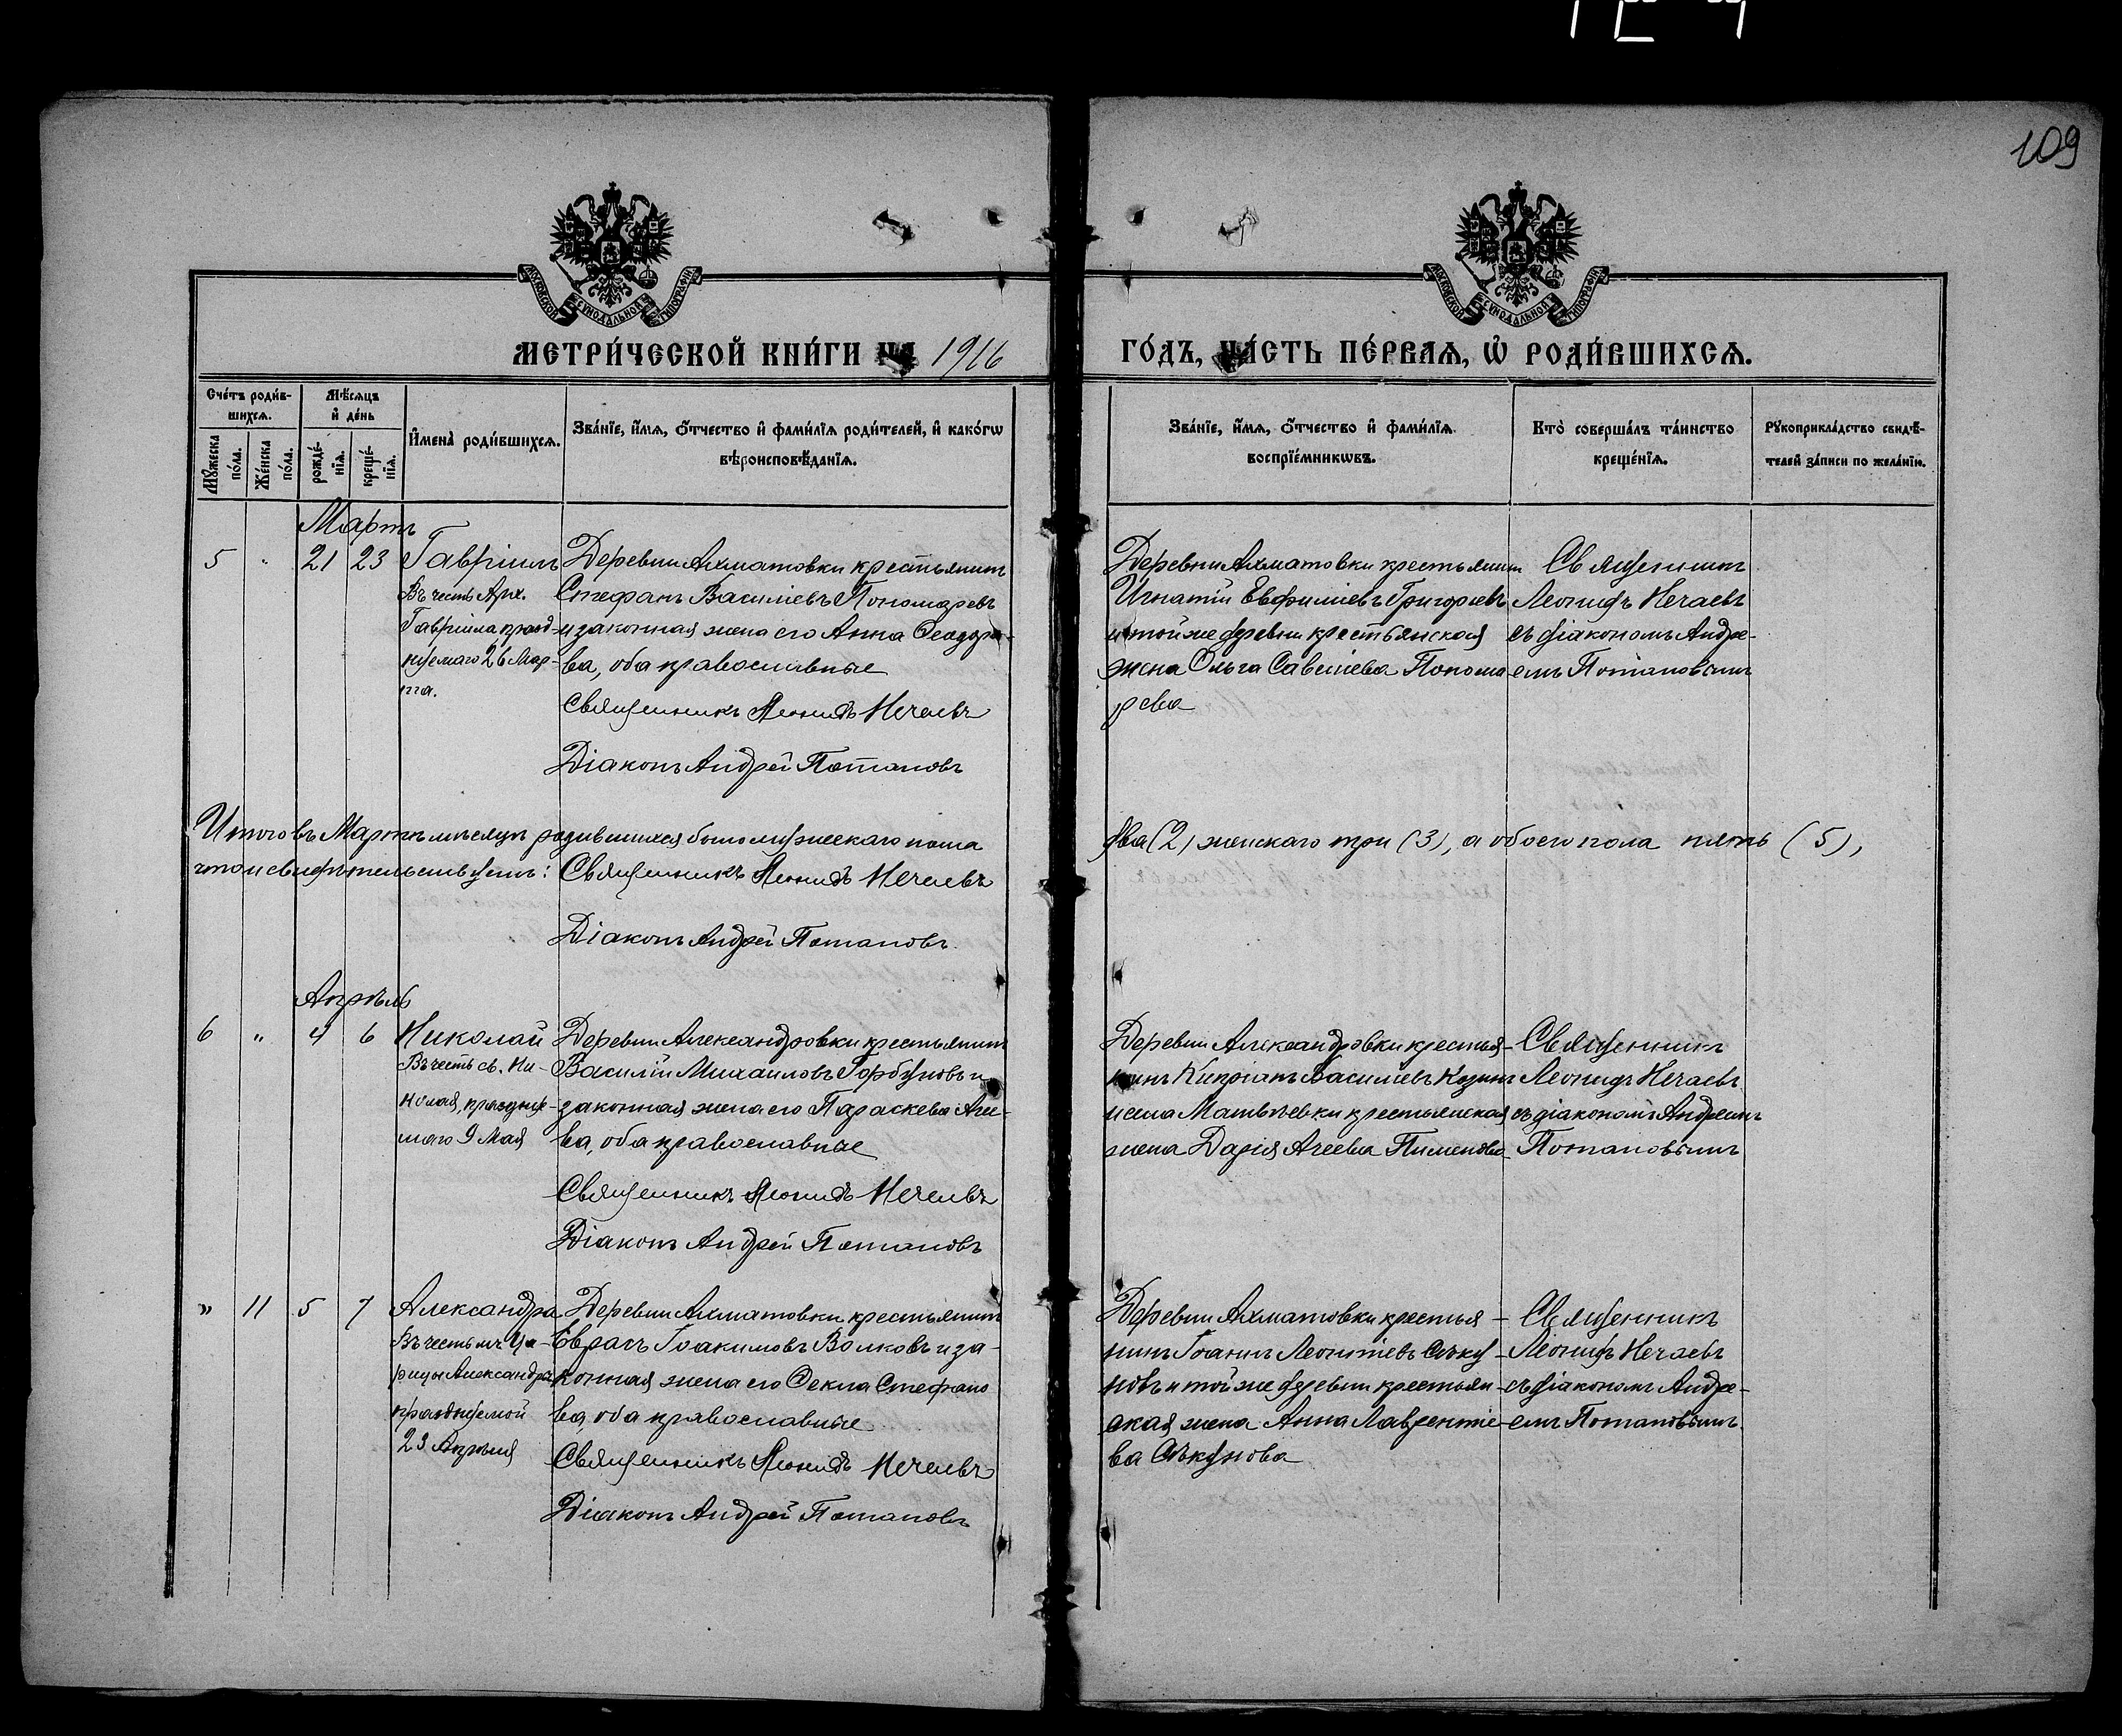 109
МОСКОВСКОЙ СѴНОДАЛЬНОЙ ТИПОГРАФІИ
МОСКОВСКОЙ СѴНОДАЛЬНОЙ ТИПОГРАФІИ
МЕТРИ́ЧЕСКОЙ КНИ́ГИ НА 1916
ГО́ДЪ, ЧА́СТЬ ПЕ́РВАѦ, Ѡ҆ РОДИ́ВШИХСѦ.
Сче́тъ роди́в-
шихсѧ.
Мꙋ́жеска
по́ла.
Же́нска
по́ла.
Мѣ́сѧцъ
и҆ де́нь
рожде́-
нїѧ.
креще́-
нїѧ.
И҆мена̀ роди́вшихсѧ.
Зва́нїе, и҆́мѧ, ѻ҆́тчество и҆ фами́лїѧ роди́телей, и҆ како́гѡ
вѣроисповѣ́данїѧ.
Зва́нїе, и҆́мѧ, ѻ҆́тчество и҆ фами́лїѧ
воспрїе́мникѡвъ.
Кто̀ соверша́лъ та́инство
креще́нїѧ.
Рꙋкоприкла́дство свидѣ́-
телей за́писи по жела́нїю.
Мартъ
5 " 21 23
Гавріилъ
Въ честь Арх.
Гавріила празд-
нуемаго 26 Мар-
та.
Деревни Ахматовки крестьянинъ
Стефанъ Василіевъ Пономаревъ
и законная жена его Анна Ѳеодоро-
ва, оба православные
Священникъ Леонидъ Нечаевъ
Діаконъ Андрей Потаповъ
Деревни Ахматовки крестьянинъ
Игнатій Евфиміевъ Григорьевъ
и той же деревни крестьянская
жена Ольга Савеліева Понома
рева
Священникъ
Леонидъ Нечаевъ
съ діакономъ Андре-
емъ Потаповымъ
Итого въ Мартѣ мѣсяцѣ родившихся было мужескаго пола
два (2) женскаго три (3), а обоего пола пять (5),
что и свидѣтельствуемъ: Священникъ Леонидъ Нечаевъ
Діаконъ Андрей Потаповъ
Апрѣль
6 " 4 6
Николай
Въ честь св. Ни-
колая, празднуе-
маго 9 Мая
Деревни Александровки крестьянинъ
Василій Михаиловъ Горбуновъ и
законная жена его Параскева Агее-
ва, оба православные
Священникъ Леонидъ Нечаевъ
Діаконъ Андрей Потаповъ
Деревни Александровки крестья-
нинъ Кипріанъ Василіевъ
и села Матвѣевки крестьянская
жена Дарія Агеева Пименова
Священникъ
Леонидъ Нечаевъ
съ діакономъ Андреемъ
Потаповымъ
" 11 5 7
Александра
Въ честь мч. Ца-
рицы Александры
празднуемой
23 Апрѣля
Деревни Ахматовки крестьянинъ
Іоакимовъ Волковъ и за-
конная жена его Ѳекла Стефано
ва, оба православные
Священникъ Леонидъ Нечаевъ
Діаконъ Андрей Потаповъ
Деревни Ахматовки крестья-
нинъ Іоаннъ Леонтіевъ Сѣку-
новъ и той же деревни крестьян-
ская жена Анна Лаврентіе-
ва Сѣкунова
Священникъ
Леонидъ Нечаевъ
съ діакономъ Андре-
емъ Потаповымъ